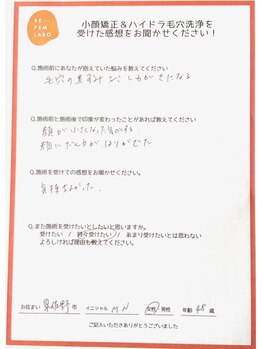 RE-
PEN
LABO
小顔矯正＆ハイドラ毛穴洗浄を
受けた感想をお聞かせください！
Q.施術前にあなたが抱えていた悩みを教えてください
毛穴の黒ずみ シミ しわがきになる
Q.施術前と施術後で印象が変わったことがあれば教えてください
顔が小さくなった気がする
顔にだん力がはりがでた
Q.施術を受けての感想をお聞かせください。
気持ちよかった。
Q.また施術を受けたいとしたいと思いますか。
受けたい / 時々受けたい / あまり受けたいとは思わない
よろしければ理由も教えてください。
お住まい 泉佐野 市 イニシャル M N 女性 男性 年齢 48 歳
ご記入いただきありがとうございました